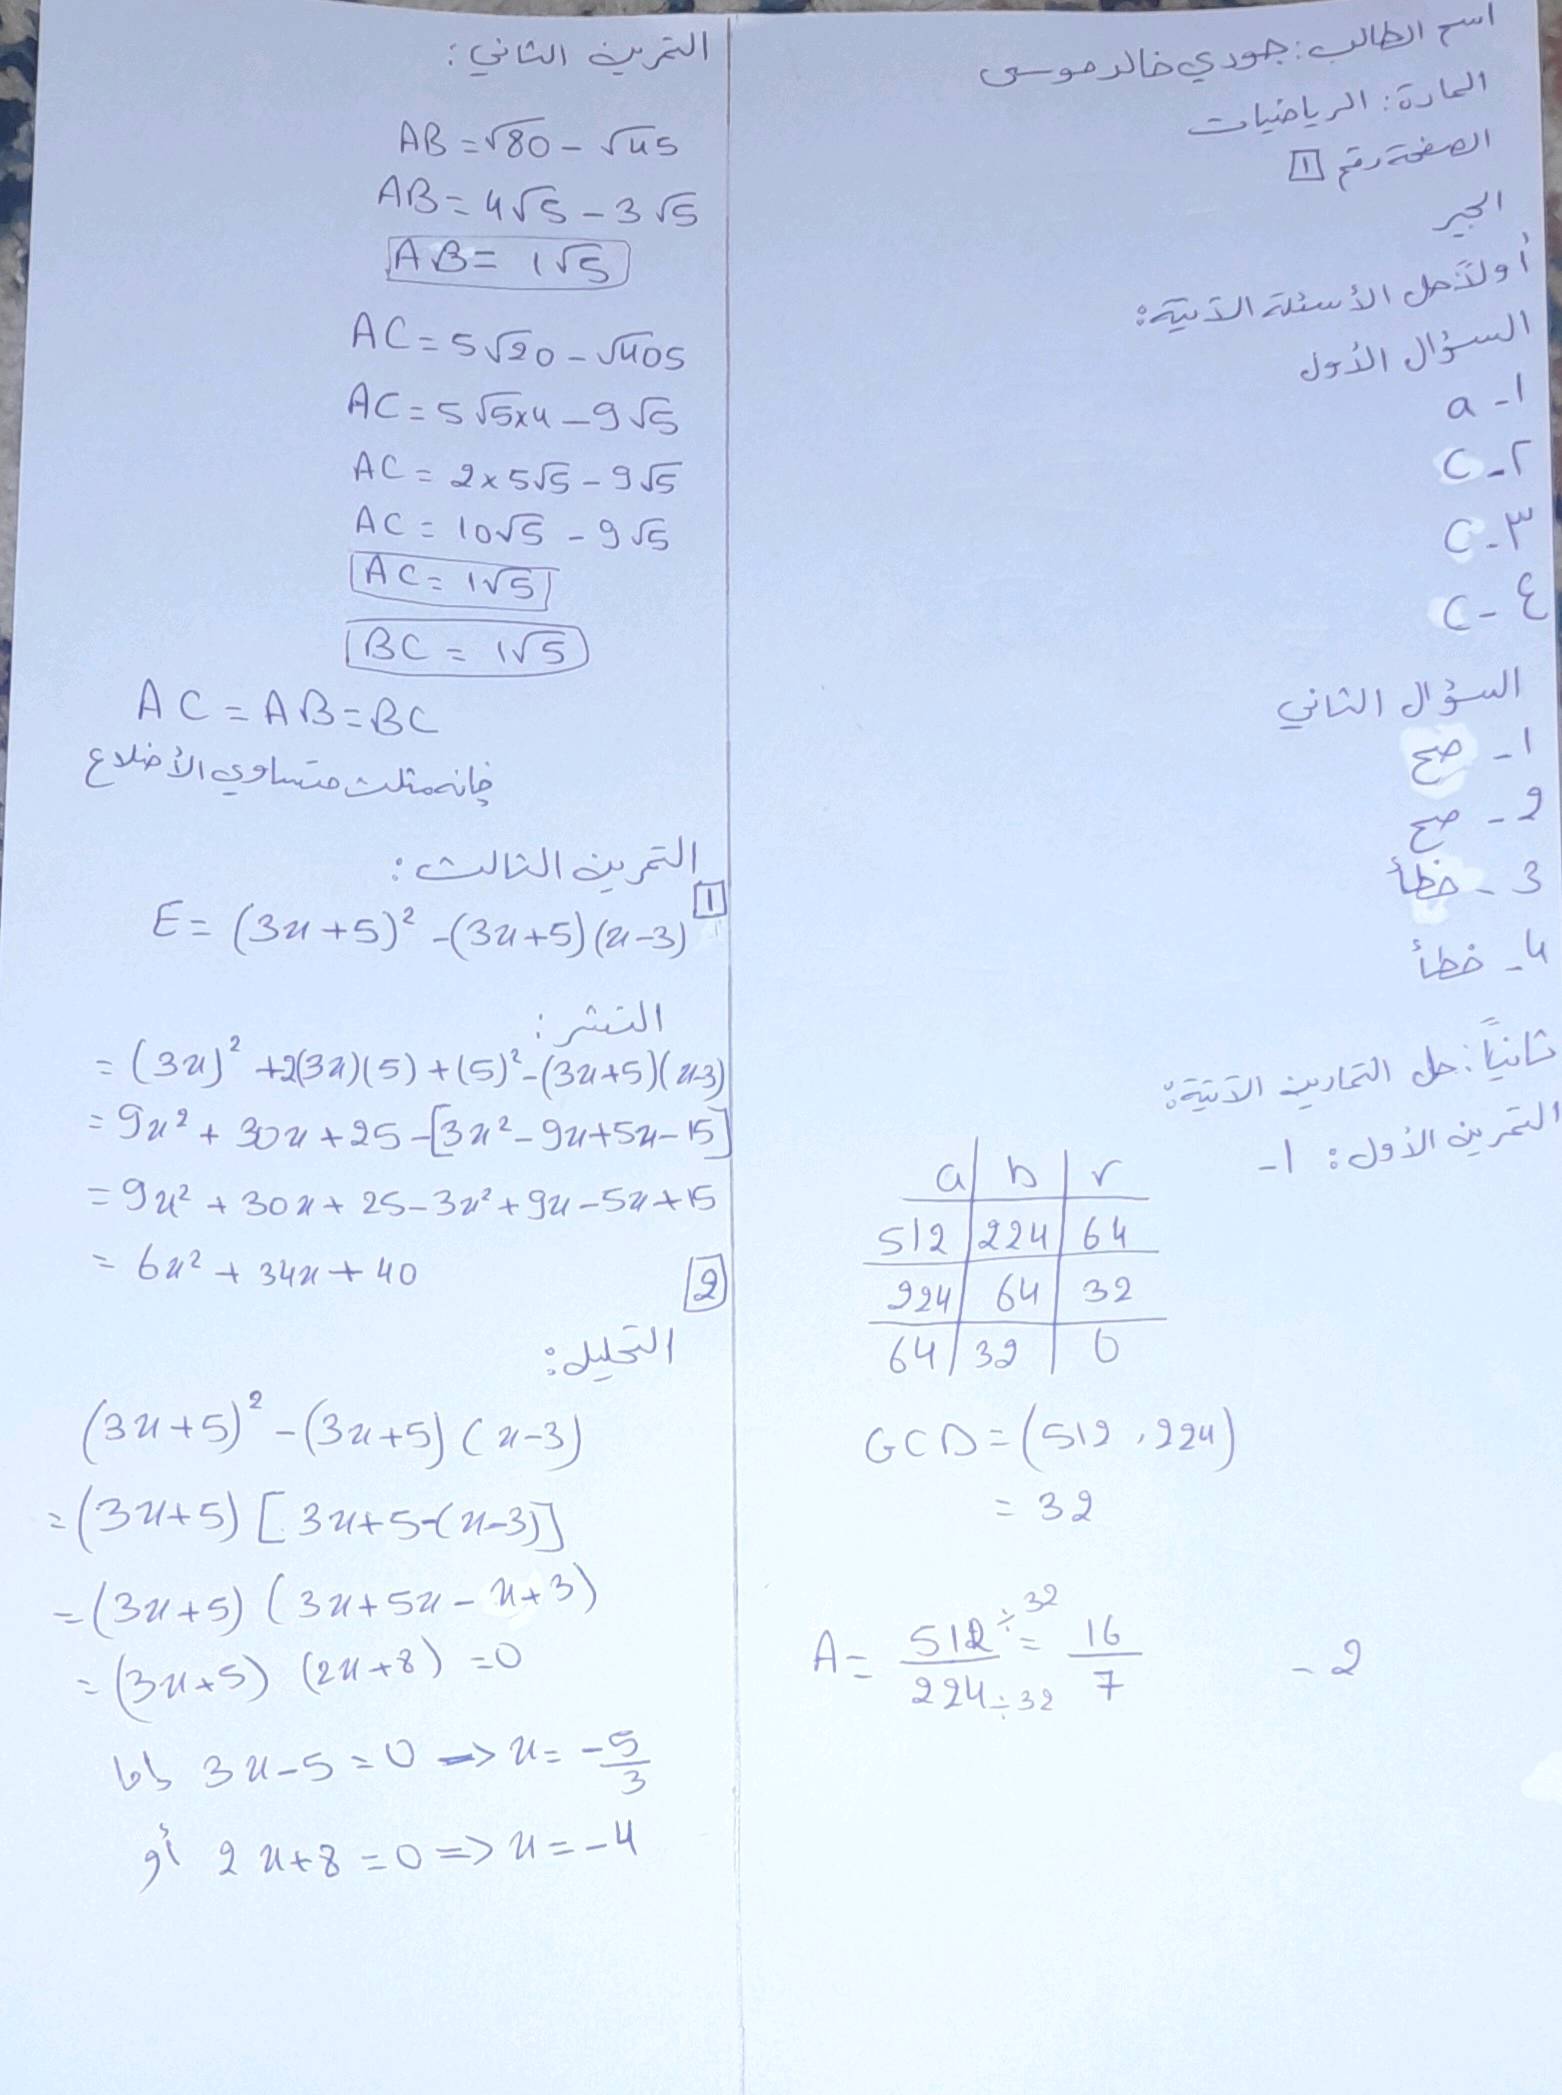 اسم الطالب: جودي خالد موسى
المادة: الرياضيات
الصفحة رقم 1
الجبر
أولاً: حل الأسئلة الآتية:
السؤال الأول
١- a
٢- C
٣- C
٤- C
السؤال الثاني
١- صح
2- صح
3- خطأ
4- خطأ
ثانياً: حل التمارين الآتية:
التمرين الأول: ١-
a | b | r
512 | 224 | 64
224 | 64 | 32
64 | 32 | 0
GCD = (512, 224)
= 32
2- A = 512÷32 / 224÷32 = 16/7
التمرين الثاني:
AB = √80 - √45
AB = 4√5 - 3√5
AB = 1√5
AC = 5√20 - √405
AC = 5√5x4 - 9√5
AC = 2x5√5 - 9√5
AC = 10√5 - 9√5
AC = 1√5
BC = 1√5
AC = AB = BC
فإنه مثلث متساوي الأضلاع
التمرين الثالث:
1 E = (3x+5)² - (3x+5)(x-3)
النشر:
= (3x)² + 2(3x)(5) + (5)² - (3x+5)(x-3)
= 9x² + 30x + 25 - [3x² - 9x + 5x - 15]
= 9x² + 30x + 25 - 3x² + 9x - 5x + 15
= 6x² + 34x + 40
2
التحليل:
(3x+5)² - (3x+5)(x-3)
= (3x+5) [3x+5-(x-3)]
= (3x+5) (3x+5x - x+3)
= (3x+5) (2x+8) = 0
إما 3x-5 = 0 => x = -5/3
أو 2x+8 = 0 => x = -4